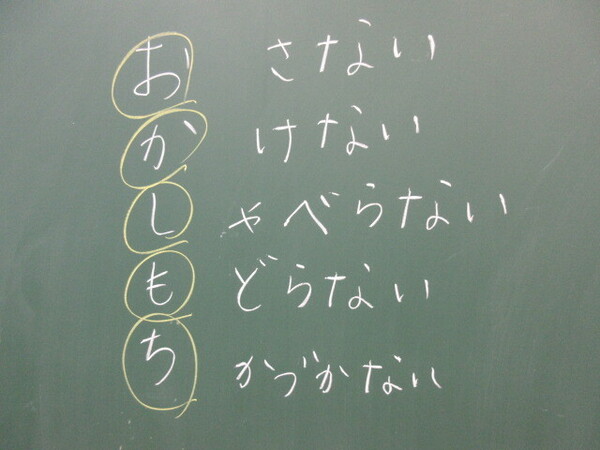 お さない
か けない
し ゃべらない
も どらない
ち かづかない